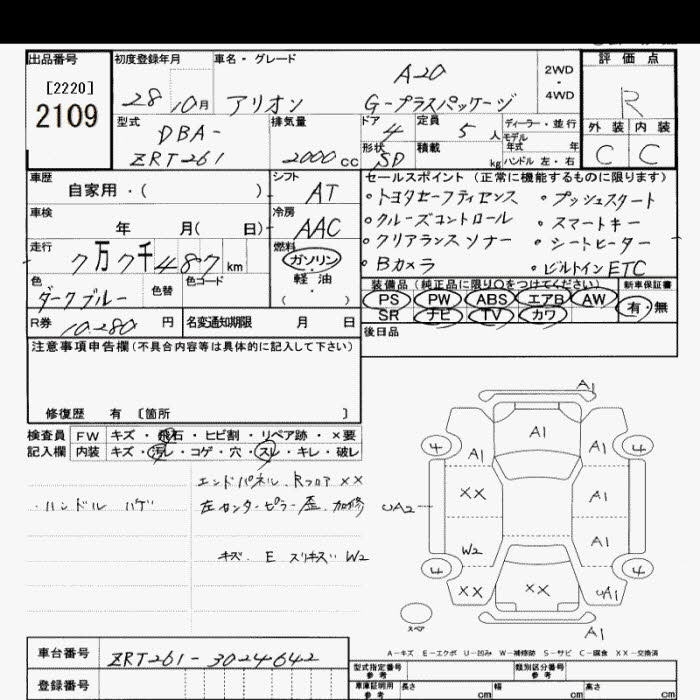 出品番号
[2220]
2109
初度登録年月
28 10月
車名・グレード
A20
アリオン G-プラスパッケージ
2WD
・
4WD
評価点
R
外装 内装
C C
型式
DBA-
ZRT261
排気量
2000 cc
ドア
4
形状
SD
定員
5 人
積載
kg
ディーラー・並行
モデル
年式 年
ハンドル 左・右
車歴
自家用・( )
シフト
AT
車検
年 月( 日)
冷房
AAC
走行
7万7千487 km
燃料
ガソリン
・
軽油
( )
色
ダークブルー
色替
色コード
R券
10,280 円
名変通知期限 月 日
セールスポイント (正常に機能するものに限ります)
・トヨタセーフティセンス ・プッシュスタート
・クルーズコントロール ・スマートキー
・クリアランスソナー ・シートヒーター
・Bカメラ ・ビルトインETC
装備品 (純正品に限り〇をつけてください)
PS PW ABS エアB AW
SR ナビ TV カワ
新車保証書
有・無
後日品
注意事項申告欄(不具合内容等は具体的に記入して下さい)
修復歴 有 〔箇所 〕
検査員
記入欄
FW キズ・飛石・ヒビ割・リペア跡・×要
内装 キズ・汚レ・コゲ・穴・スレ・キレ・破レ
エンドパネル、Rフロア XX
・ハンドル ハゲ
左センターピラー 歪、加修
キズ、E スリキズ W2
A1
A1
4 A1 A1 4
XX A1
UA2
W2 A1
4 4
XX XX UA1
スペア
A1
A-キズ E-エクボ U-凹み W-補修跡 S-サビ C-腐食 XX-交換済
車台番号
ZRT261-3024642
登録番号
型式指定番号
参考
類別区分番号
参考
車庫証明用
参考
長さ cm 幅 cm 高さ cm